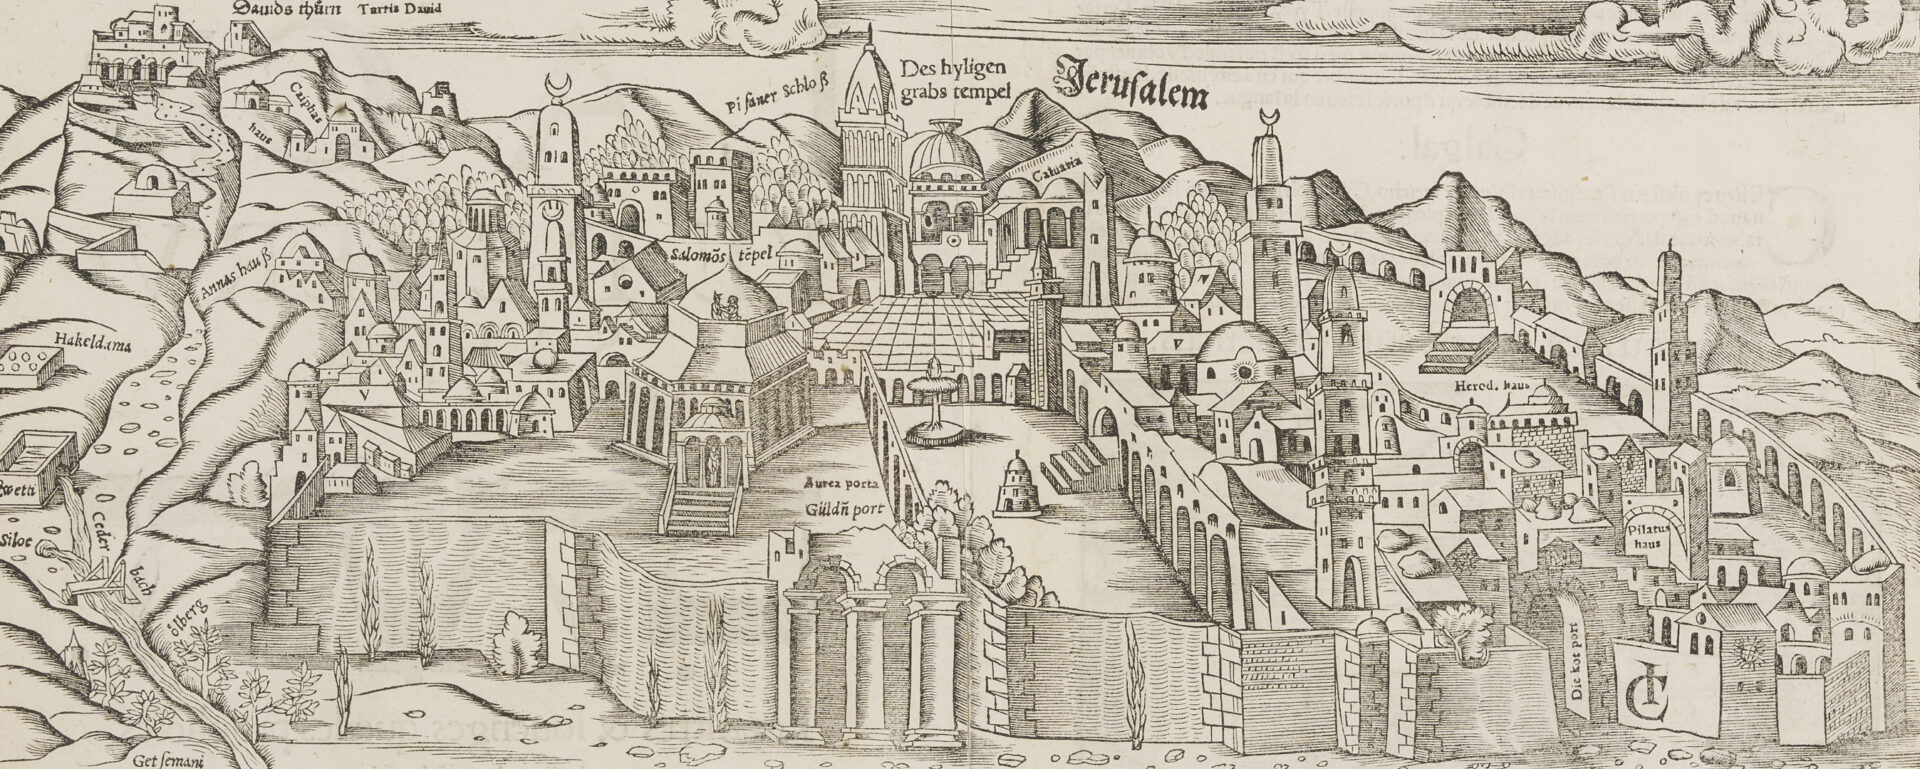 Dauids thůrn Turris Dauid
Caiphas
haus
Pisaner Schloß
Des hyligen
grabs tempel
Jerusalem
Caluaria
Annas hauß
Salomōs tēpel
Hakeldama
Herod. haus
Aurea porta
Güldn̄ port
Pilatus
haus
Siloe
Ceder
bach
ölberg
Die kot port
Get semani